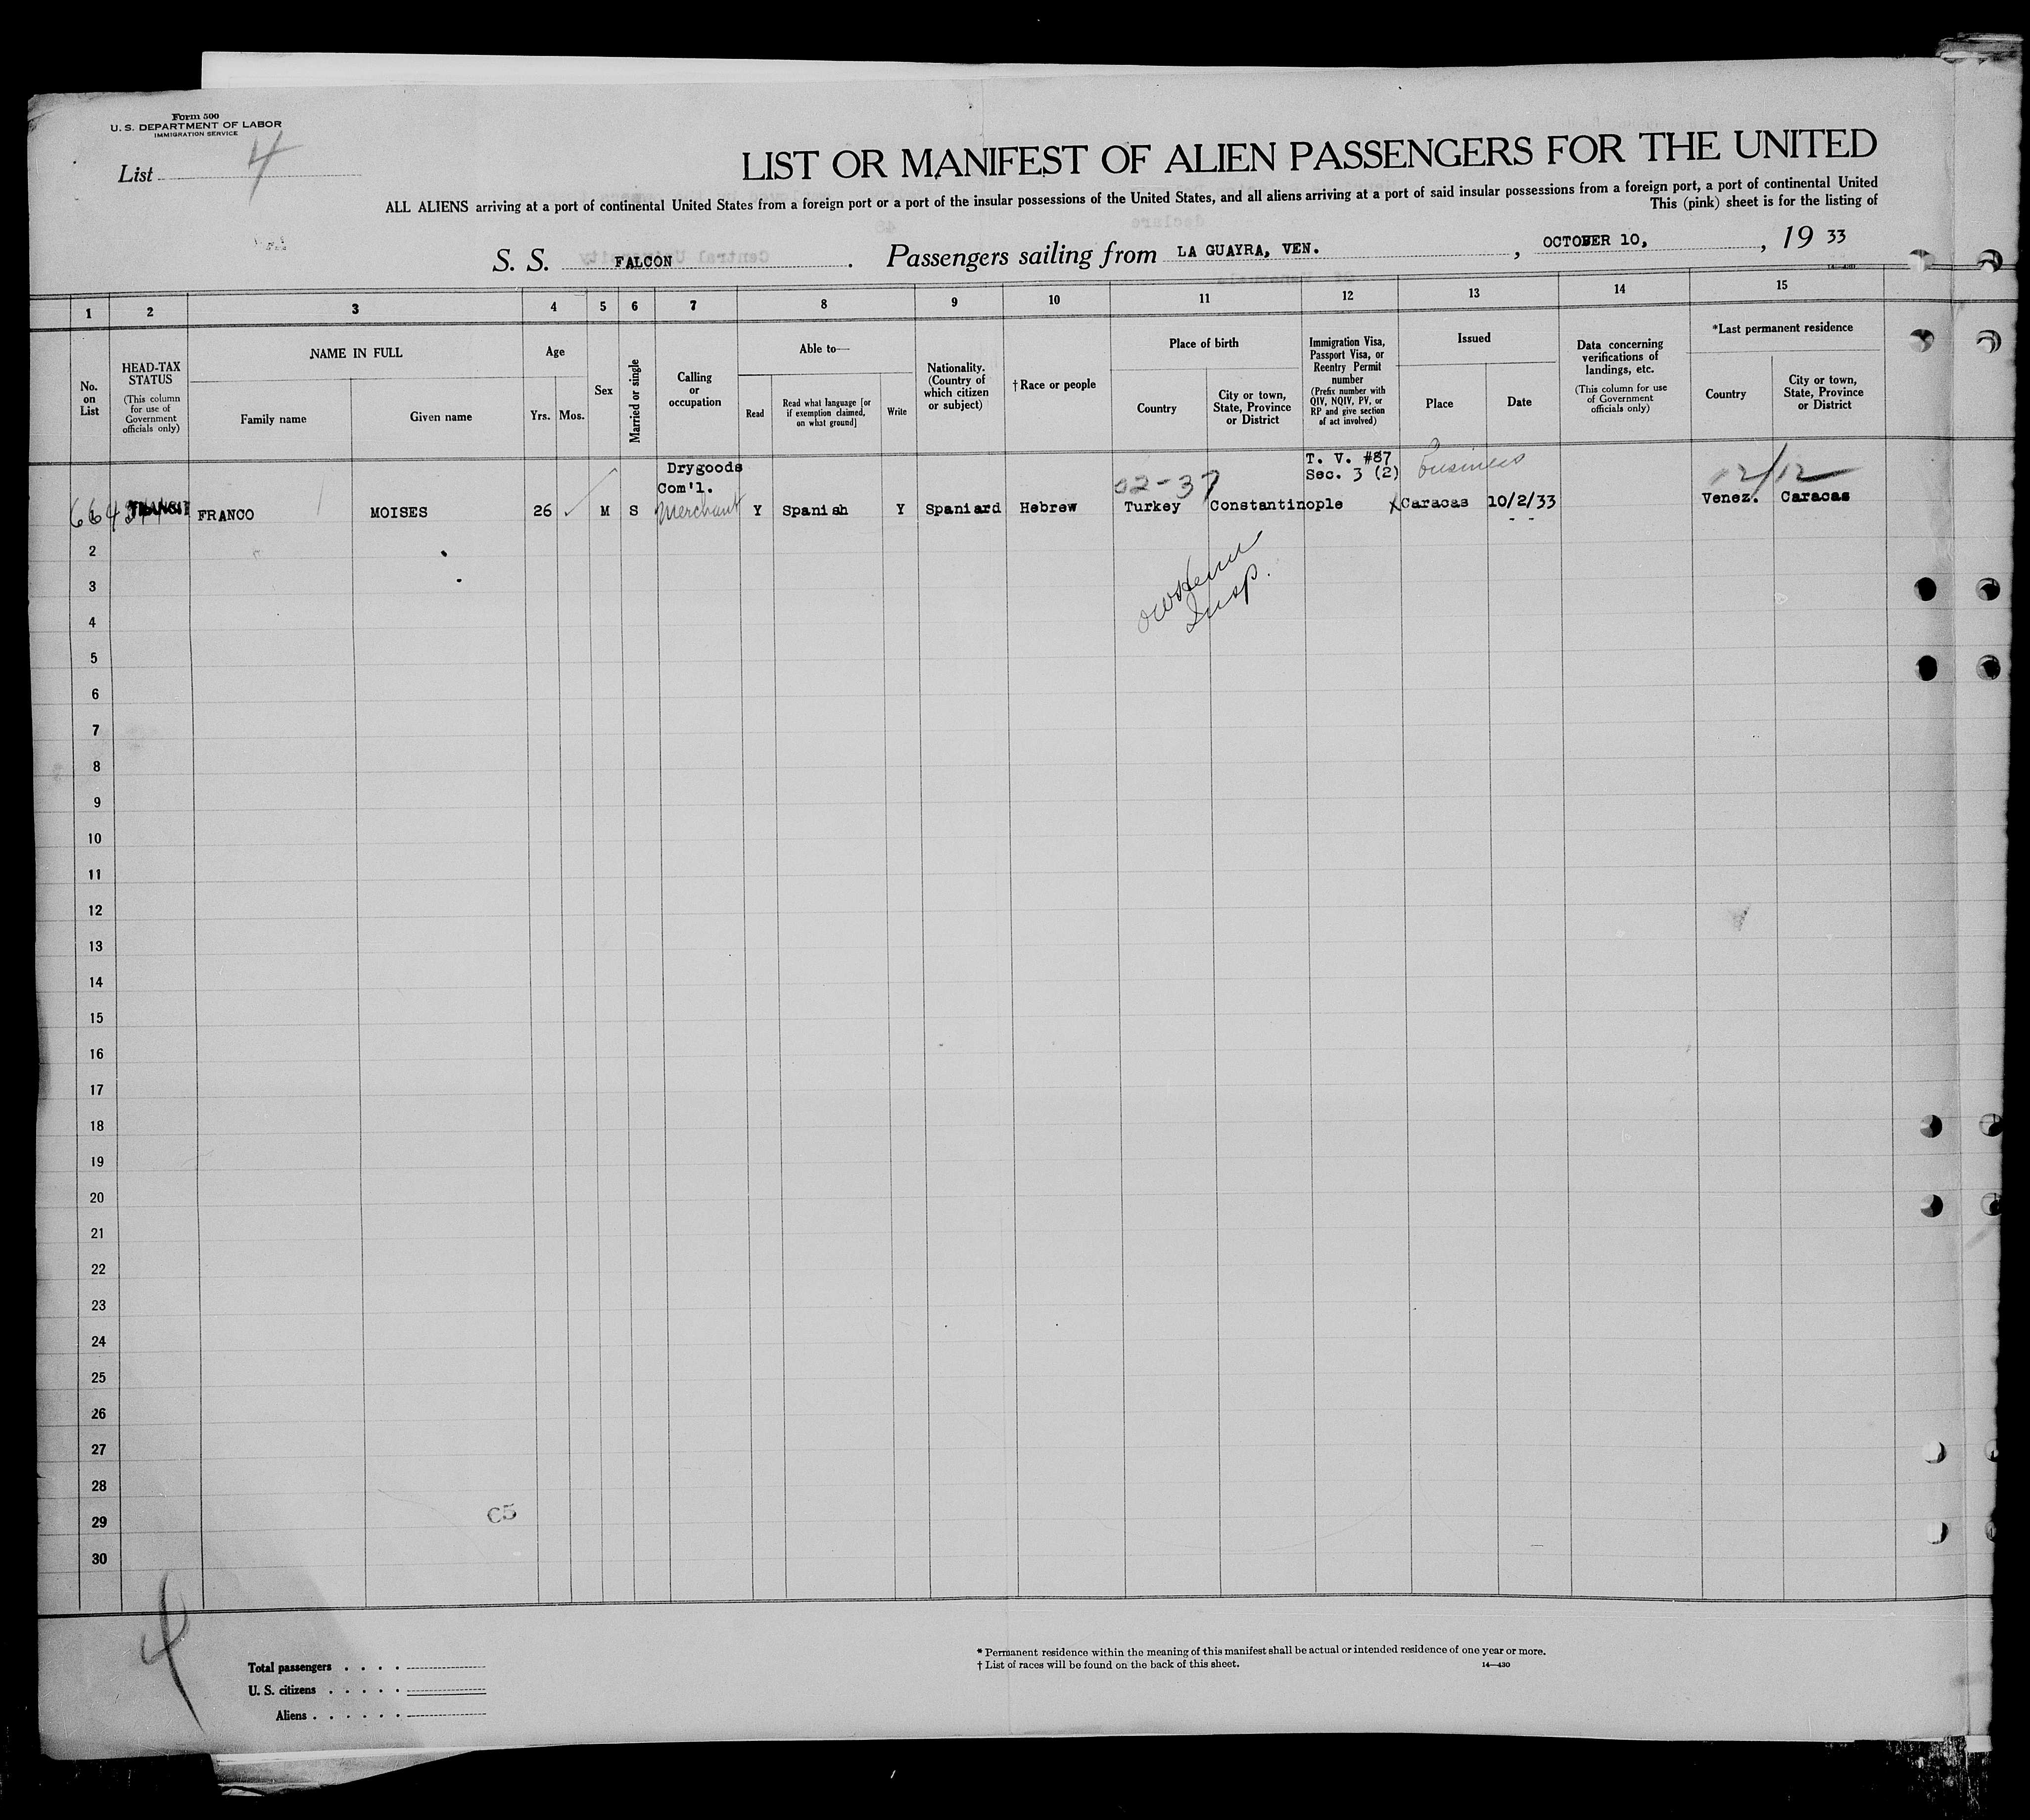 Form 500
U. S. DEPARTMENT OF LABOR
IMMIGRATION SERVICE
List 4
LIST OR MANIFEST OF ALIEN PASSENGERS FOR THE UNITED
ALL ALIENS arriving at a port of continental United States from a foreign port or a port of the insular possessions of the United States, and all aliens arriving at a port of said insular possessions from a foreign port, a port of continental United
This (pink) sheet is for the listing of
S. S. FALCON . Passengers sailing from LA GUAYRA, VEN. , OCTOBER 10, , 19 33
1 2 3 4 5 6 7 8 9 10 11 12 13 14 15
No. on List
HEAD-TAX STATUS
(This column for use of Government officials only)
NAME IN FULL
Family name
Given name
Age
Yrs.
Mos.
Sex
Married or single
Calling or occupation
Able to—
Read
Read what language [or if exemption claimed, on what ground]
Write
Nationality. (Country of which citizen or subject)
†Race or people
Place of birth
Country
City or town, State, Province or District
Immigration Visa, Passport Visa, or Reentry Permit number
(Prefix number with QIV, NQIV, PV, or RP and give section of act involved)
Issued
Place
Date
Data concerning verifications of landings, etc.
(This column for use of Government officials only)
*Last permanent residence
Country
City or town, State, Province or District
Drygoods
Com'l.
T. V. #87
Sec. 3 (2)
Business
02-37
12/12
FRANCO MOISES 26 M S Merchant Y Spanish Y Spaniard Hebrew Turkey Constantinople Caracas 10/2/33 Venez. Caracas
Insp.
2
3
4
5
6
7
8
9
10
11
12
13
14
15
16
17
18
19
20
21
22
23
24
25
26
27
28
29
30
C5
4
Total passengers
U. S. citizens
Aliens
* Permanent residence within the meaning of this manifest shall be actual or intended residence of one year or more.
† List of races will be found on the back of this sheet.
14—430